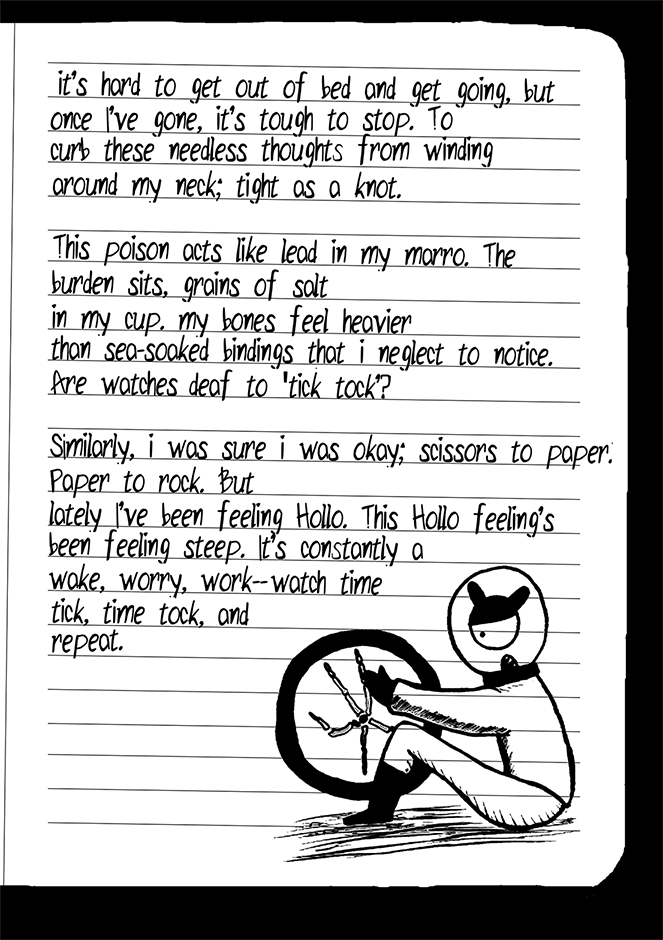 it's hard to get out of bed and get going, but
once I've gone, it's tough to stop. To
curb these needless thoughts from winding
around my neck; tight as a knot.
This poison acts like lead in my marro. The
burden sits, grains of salt
in my cup. my bones feel heavier
than sea-soaked bindings that i neglect to notice.
Are watches deaf to 'tick tock'?
Similarly, i was sure i was okay; scissors to paper.
Paper to rock. But
lately I've been feeling Hollo. This Hollo feeling's
been feeling steep. It's constantly a
wake, worry, work--watch time
tick, time tock, and
repeat.